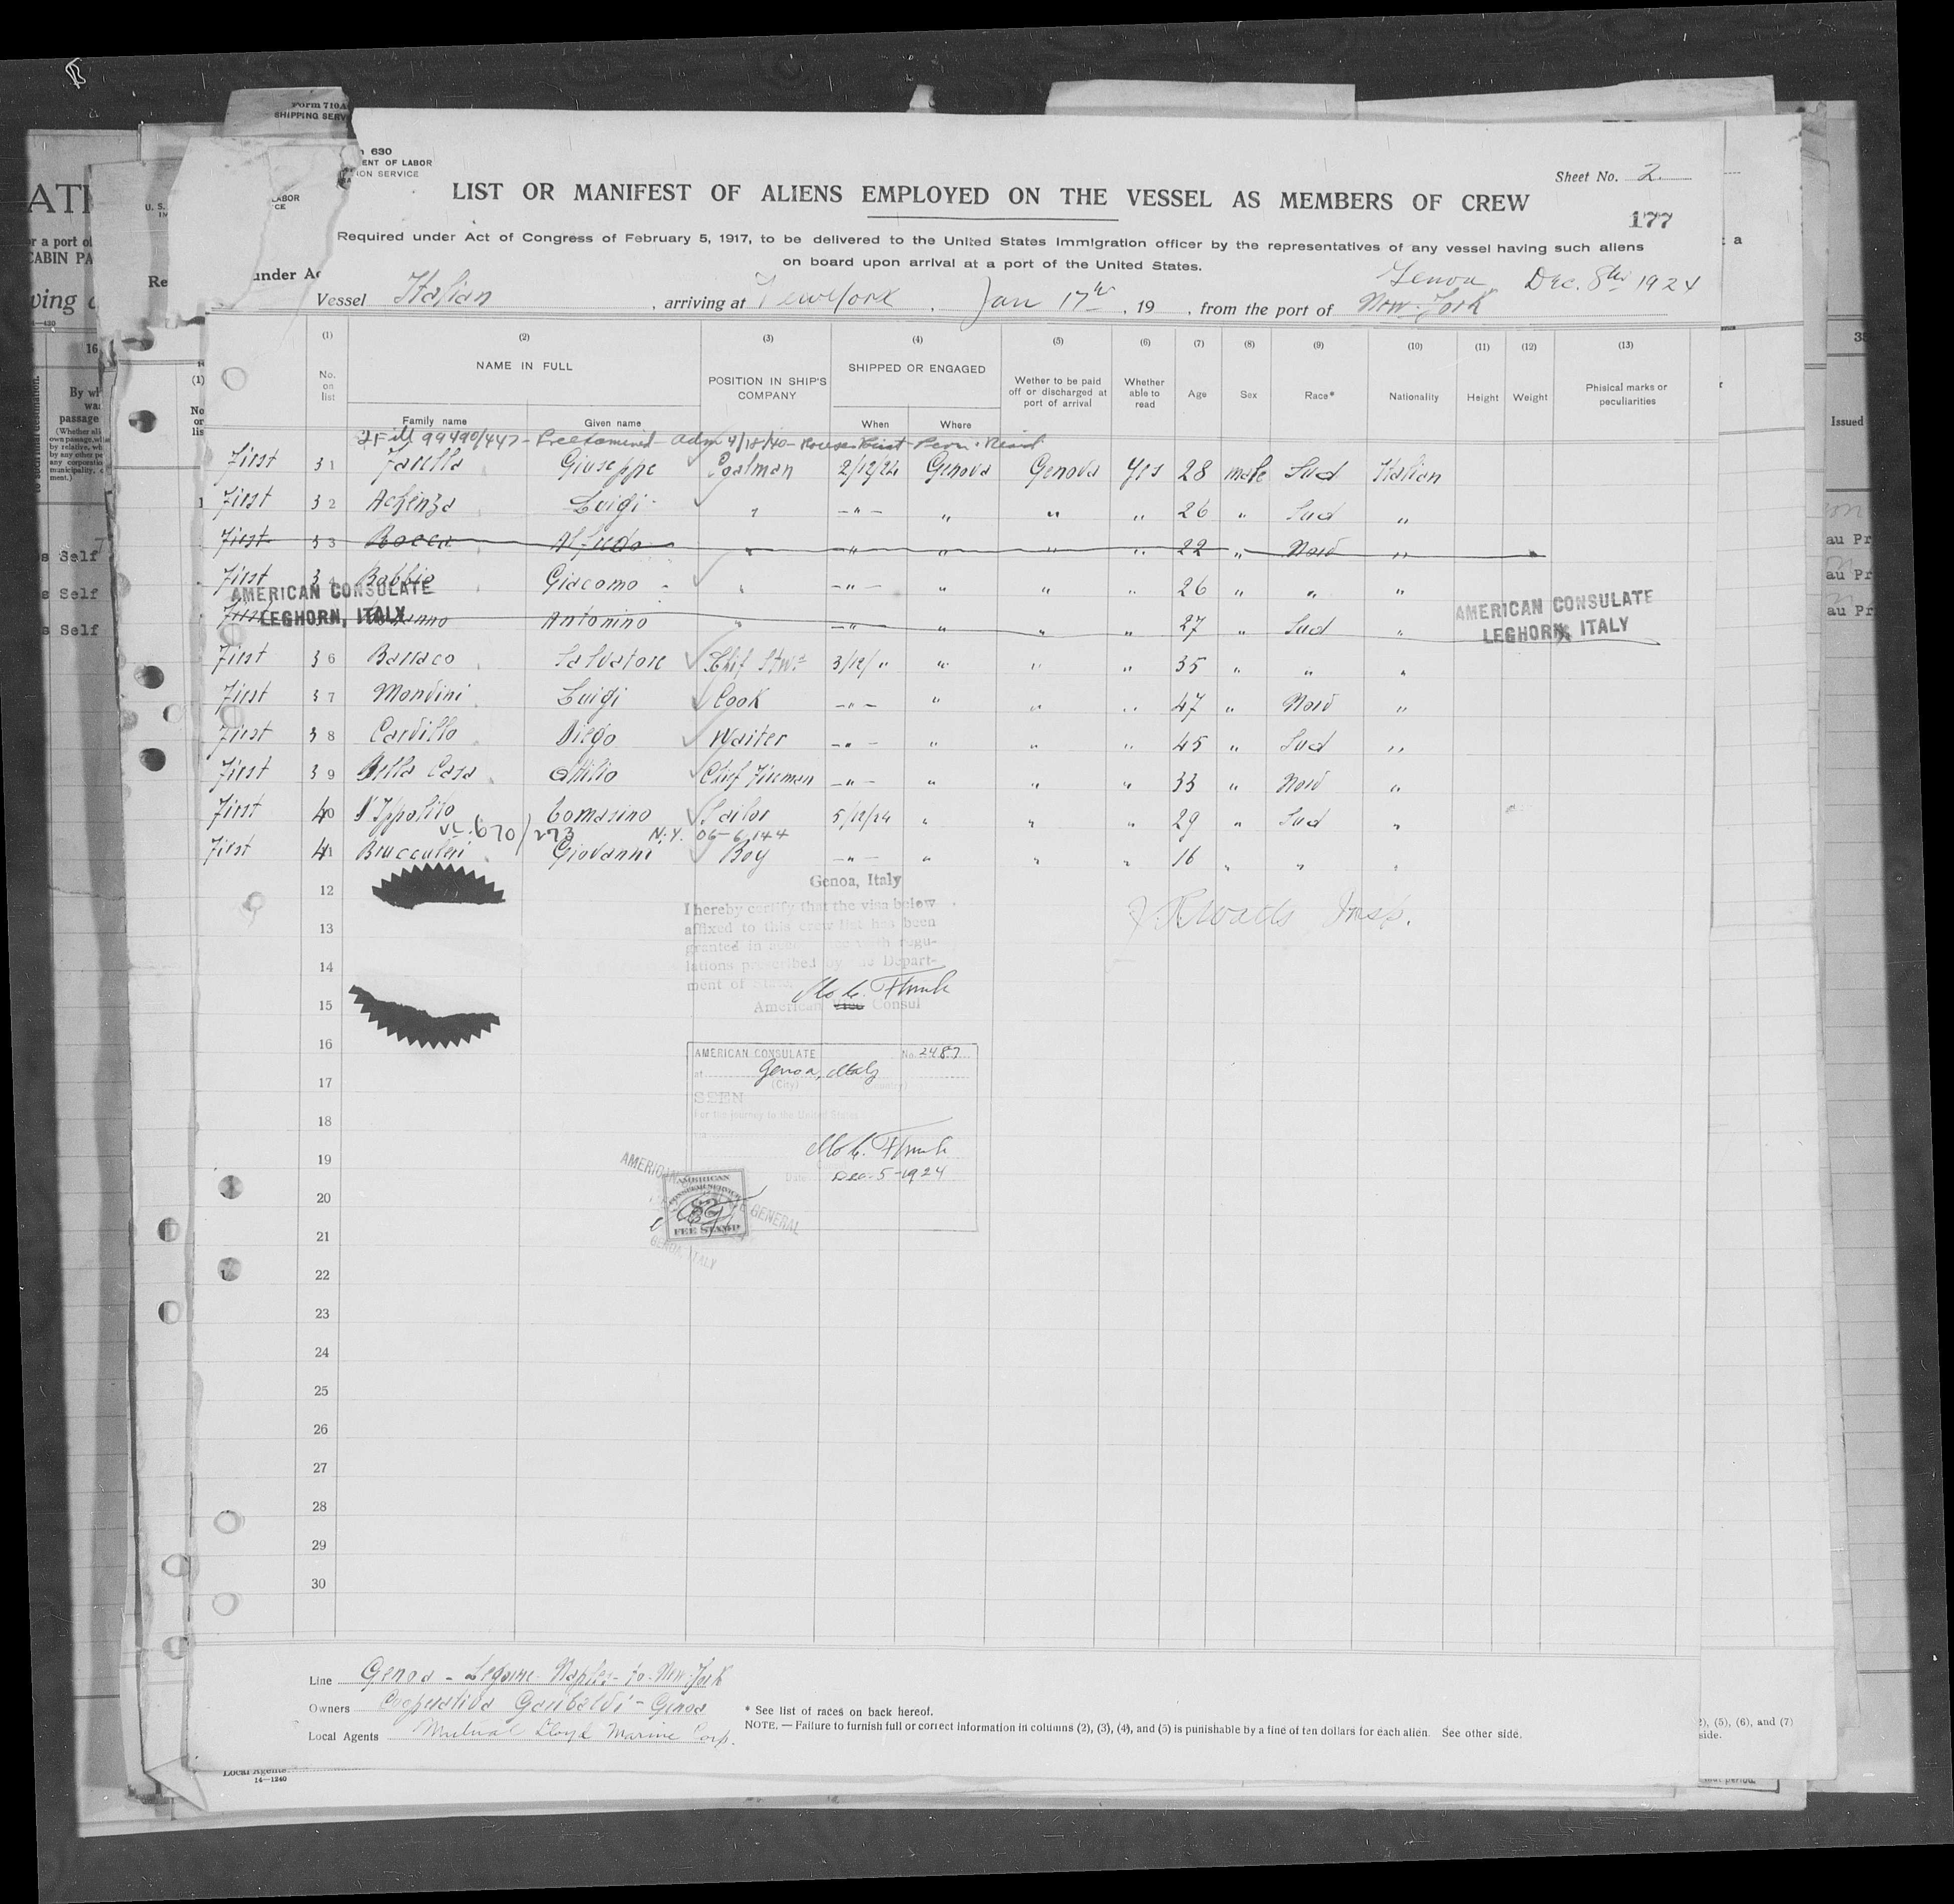 Form 710A
SHIPPING SERV
630
ENT OF LABOR
ION SERVICE
Sheet No. 2
LIST OR MANIFEST OF ALIENS EMPLOYED ON THE VESSEL AS MEMBERS OF CREW
177
Required under Act of Congress of February 5, 1917, to be delivered to the United States Immigration officer by the representatives of any vessel having such aliens
on board upon arrival at a port of the United States.
Genoa Dec. 8th 1924
Vessel Italian , arriving at New York , Jan 17th , 19 , from the port of New-York
(1) (2) (3) (4) (5) (6) (7) (8) (9) (10) (11) (12) (13)
No. on list
NAME IN FULL
Family name Given name
POSITION IN SHIP'S COMPANY
SHIPPED OR ENGAGED
When Where
Wether to be paid off or discharged at port of arrival
Whether able to read
Age Sex Race* Nationality Height Weight
Phisical marks or peculiarities
99490/447 - Preexamined - adm 4/18/40 -
First 31 Farella Giuseppe Coalman 2/12/24 Genova Genova Yes 28 male Sud Italian
First 32 Luigi " -"- " " " 26 " Sud "
First 33 Rocca Alfredo " -"- " " " 22 " Nord "
First 34 Babbio Giacomo " -"- " " " 26 " " "
AMERICAN CONSULATE
LEGHORN, ITALY
First Antonino " -"- " " " 27 " Sud "
AMERICAN CONSULATE
LEGHORN, ITALY
First 36 Barraco Salvatore Chif Stwd 3/12/" " " " 35 " " "
First 37 Mondini Luigi Cook -"- " " " 47 " Nord "
First 38 Cardillo Diego Waiter -"- " " " 45 " Sud "
First 39 Della Casa Attilio Chief Fireman -"- " " " 33 " Nord "
First 40 D'Ippolito Tomasino Sailor 5/12/24 " " " 29 " Sud "
670/273 N.Y. 06-6144
First 41 Bruccoleri Giovanni Boy -"- " " " 16 " " "
12
13
14
15
16
17
18
19
20
21
22
23
24
25
26
27
28
29
30
Genoa, Italy
I hereby certify that the visa below
affixed to this crew list has been
granted in accordance with regu-
lations prescribed by the Depart-
ment of State.
American Vice Consul
Insp.
AMERICAN CONSULATE No. 2487
at Genoa, Italy
(City) (Country)
SEEN
For the journey to the United States
Date Dec-5-1924
AMERICAN
CONSULAR SERVICE
$2
FEE STAMP
GENERAL
GENOA, ITALY
Line Genoa - Legorne - Naples - to - New-York
Owners Cooperativa Garibaldi - Genoa
Local Agents Mutual Lloyd Marine Corp.
* See list of races on back hereof.
NOTE. — Failure to furnish full or correct information in columns (2), (3), (4), and (5) is punishable by a fine of ten dollars for each alien. See other side.
Local Agents
14—1240